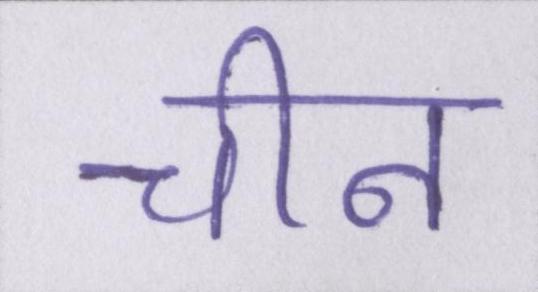 चीन